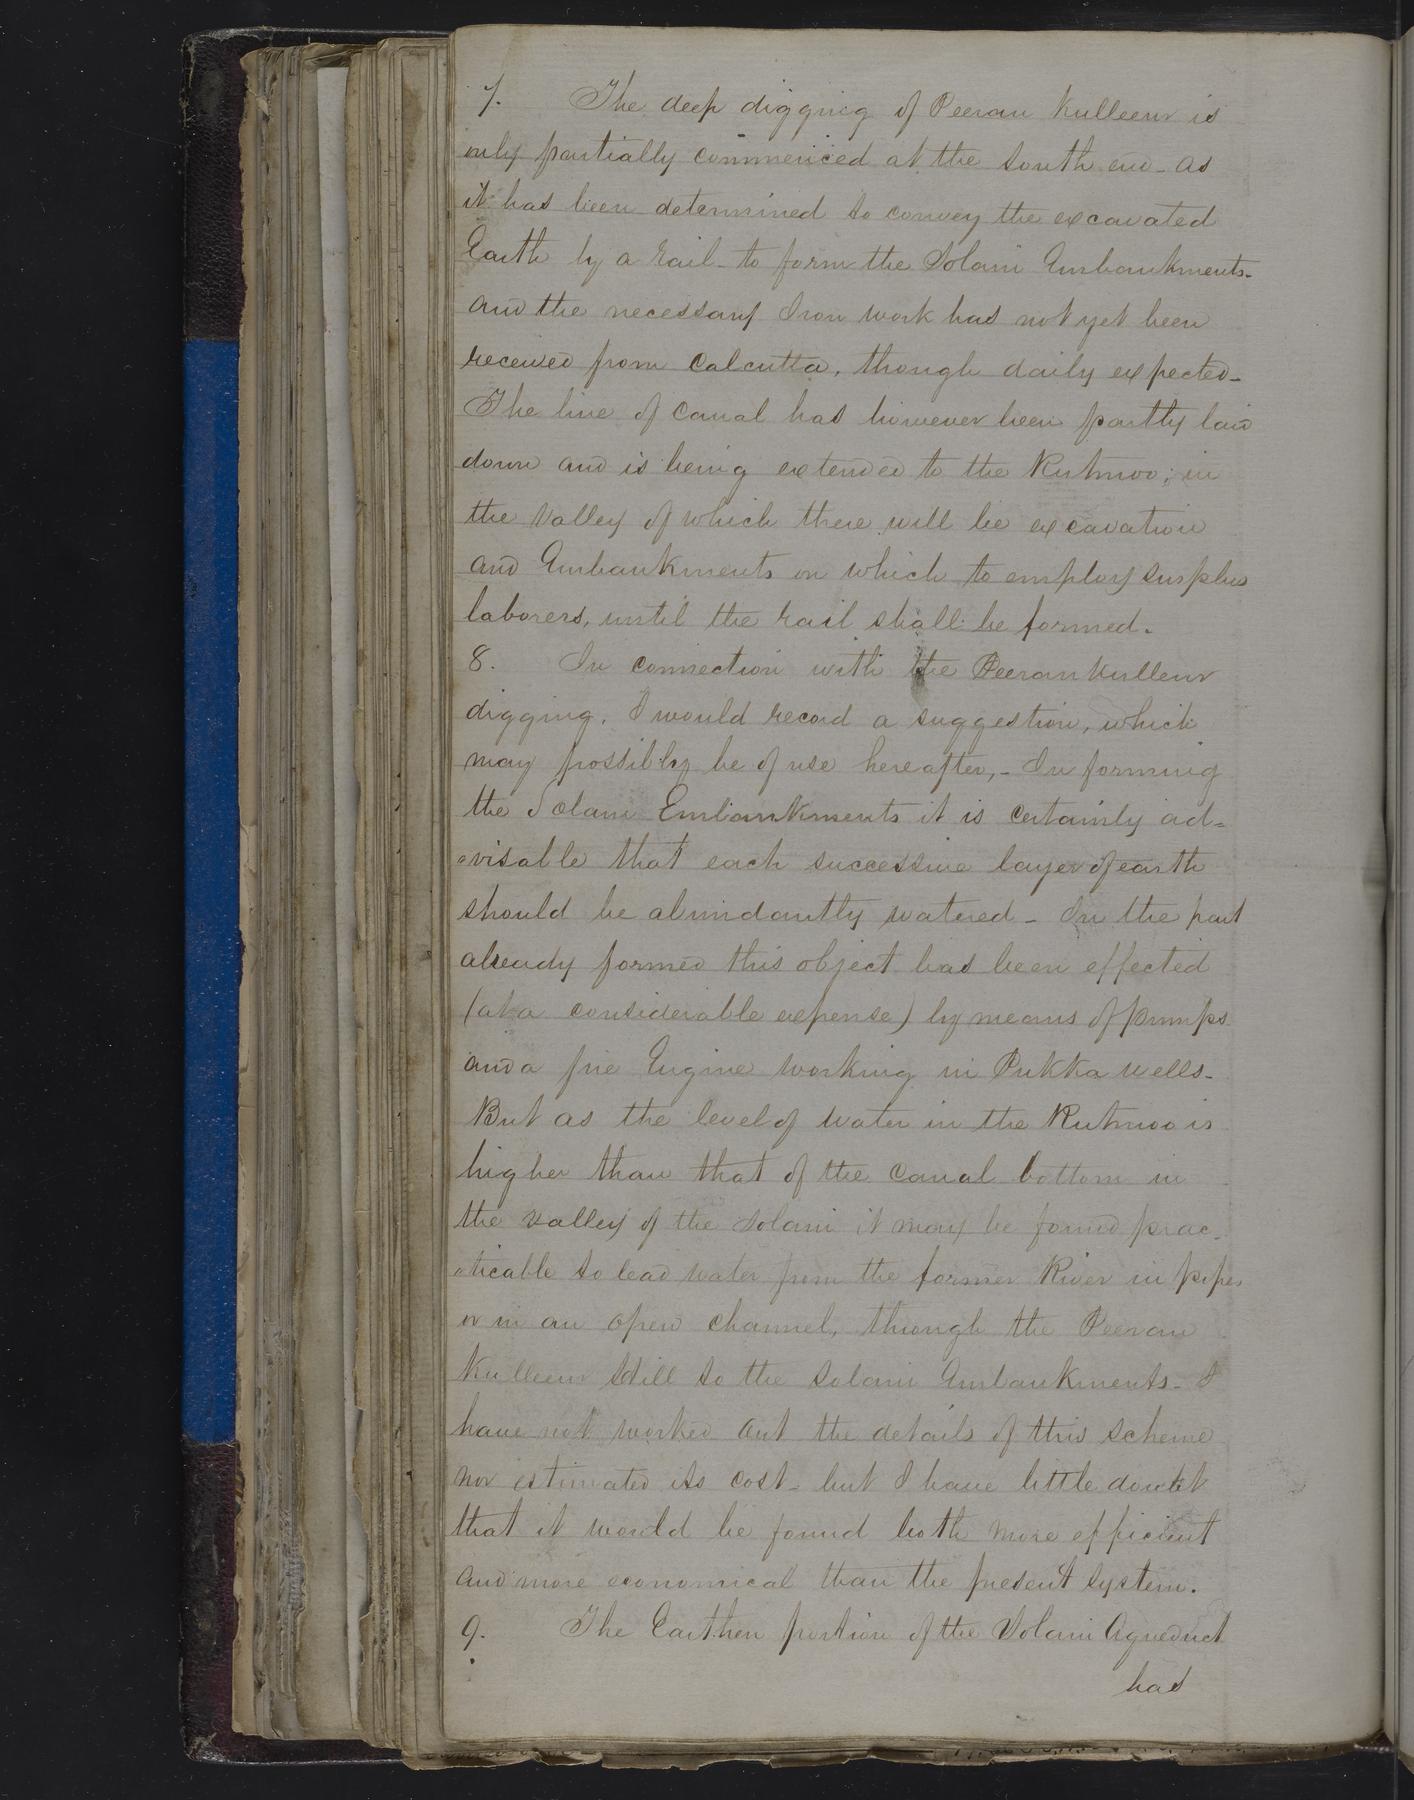 7. The deep digging of Peeran Kulleeur is
only partially commenced at the South end - as
it has been determined to convey the excavated
Earth by a rail - to form the Solani Embankments -
and the necessary Iron work has not yet been
received from Calcutta, though daily expected -
The line of Canal has however been partly laid
down and is being extended to the Rutmoo; in
the Valley of which there will be excavation
and Embankments on which to employ surplus
laborers, until the rail shall be formed.
8. In connection with the Peeran Kulleur
digging, I would record a suggestion, which
may possibly be of use hereafter, - In forming
the Solani Embankments it is certainly ad=
=visable that each successive layer of earth
should be abundantly watered - In the part
already formed this object has been effected
(at a considerable expense) by means of pumps
and a fire Engine working in Pukka wells -
But as the level of water in the Rutmoo is
higher than that of the Canal bottom in
the valley of the Solani it may be found prac=
=ticable to lead water from the former River in pipes
or in an open channel, through the Peeran
Kulleeur still to the Solani Embankments - I
have not worked out the details of this scheme
nor estimated its cost - but I have little doubt
that it would be found both more efficient
and more economical than the present system.
9. The Earthen portion of the Solani Aqueduct
has